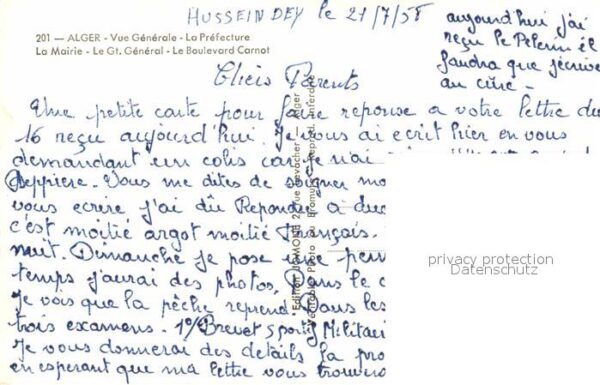 HUSSEIN DEY le 21/7/58
201 — ALGER - Vue Générale - La Préfecture
La Mairie - Le Gt. Général - Le Boulevard Carnot
aujourd'hui j'ai
reçu le Pelerin
faudra que j'écrive
au curé -
Chers Parents
Une petite carte pour faire reponse a votre lettre du
16 reçu aujourd'hui. Je vous ai ecrit hier en vous
demandant un colis car je n'ai
Vous me dites de soigner mo
vous ecrire j'ai dû Repondre a
c'est moitié argot moitié Français.
nuit. Dimanche je pose une
temps j'aurai des photos. Dans le
Je vois que la pêche reprend. Dans les
trois examens. 1°/ Brevet Sportif Militai
Je vous donnerai des details la pro
en esperant que ma lettre vous trouvera
Edition
Véritable Photo au Bromure - Reprod. Interdite
privacy protection
Datenschutz